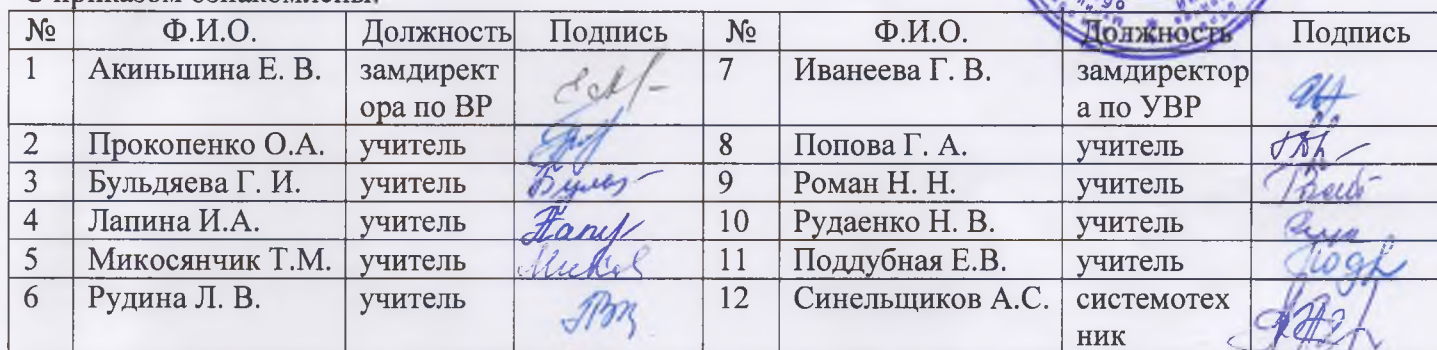 С приказом ознакомлены:
№ Ф.И.О. Должность Подпись № Ф.И.О. Должность Подпись
1 Акиньшина Е. В. замдирект 7 Иванеева Г. В. замдиректор
ора по ВР а по УВР
2 Прокопенко О.А. учитель 8 Попова Г. А. учитель
3 Бульдяева Г. И. учитель 9 Роман Н. Н. учитель
4 Лапина И.А. учитель 10 Рудаенко Н. В. учитель
5 Микосянчик Т.М. учитель 11 Поддубная Е.В. учитель
6 Рудина Л. В. учитель 12 Синельщиков А.С. системотех
ник